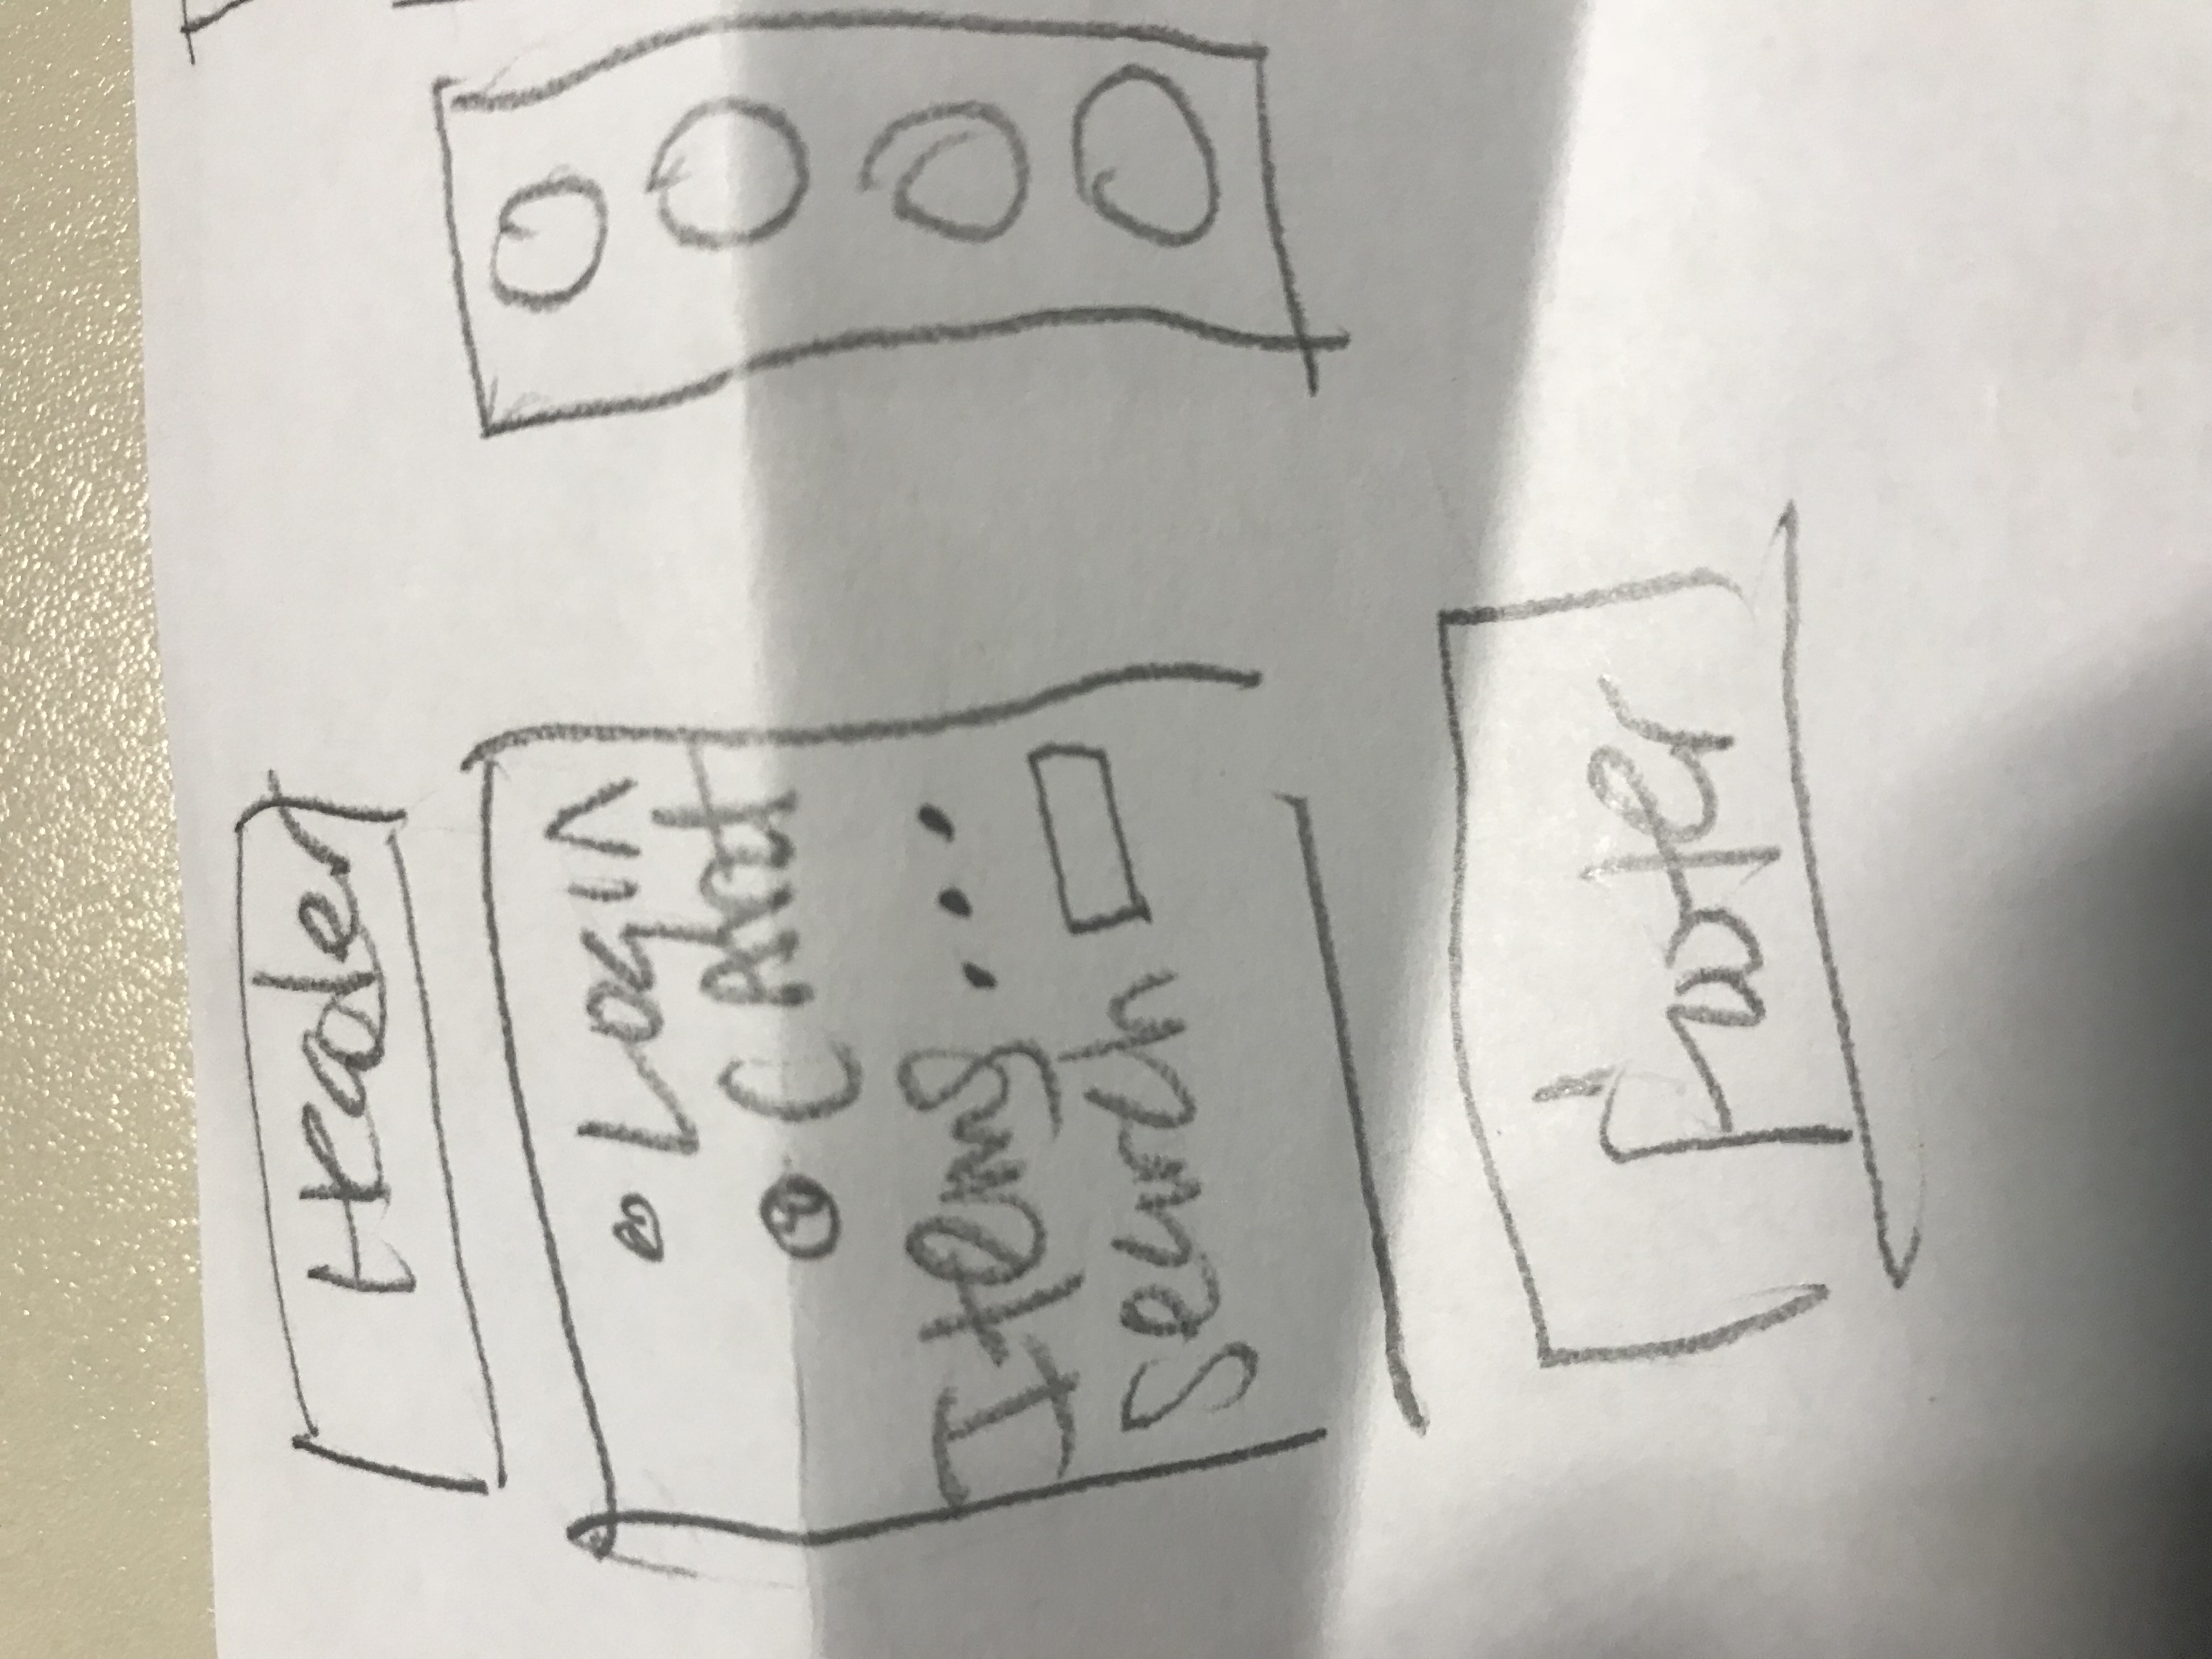 Header
Login
CARt
Items...
Search
footer